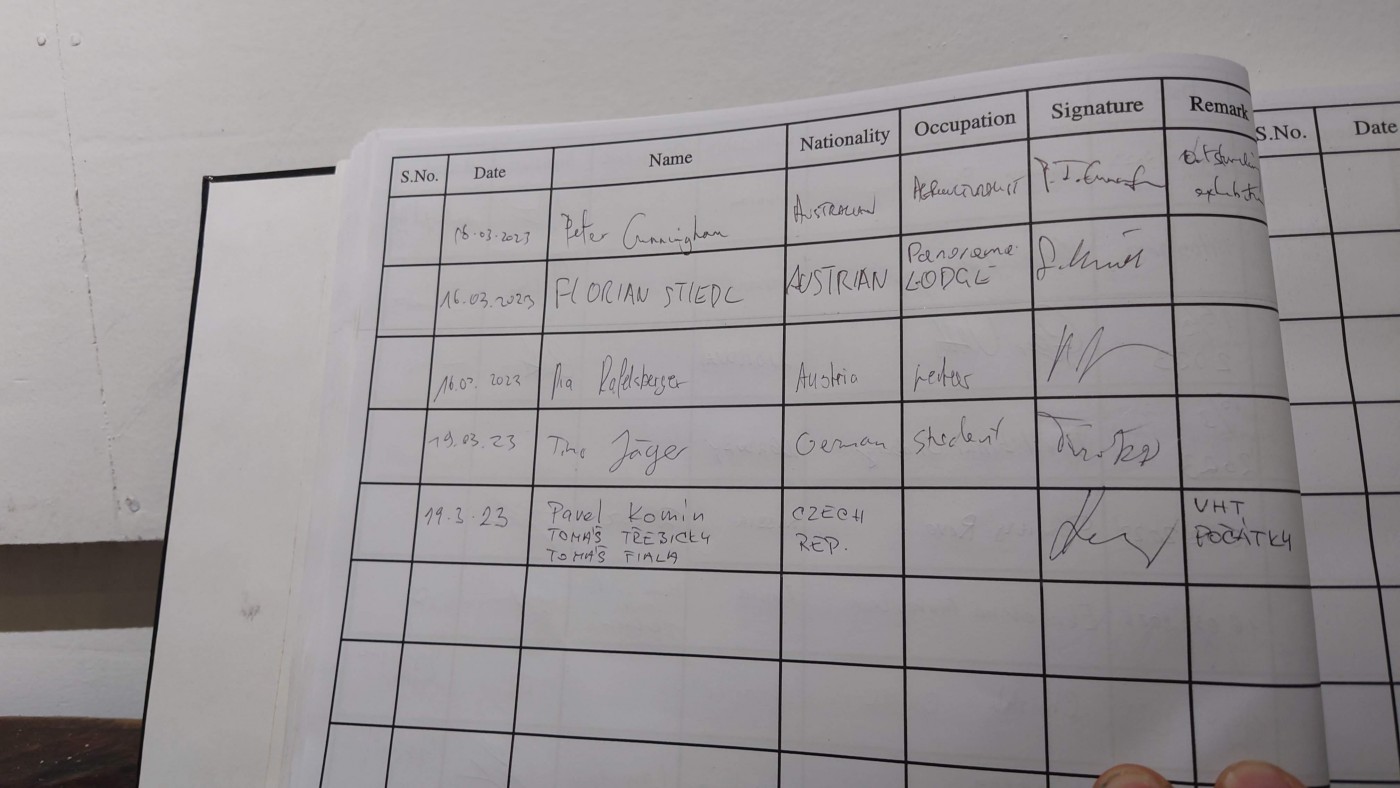 S.No. Date Name Nationality Occupation Signature Remark S.No. Date
16.03.2023 Peter Cunningham AUSTRALIAN AGRICULTURALIST
16.03.2023 FLORIAN STIEDL AUSTRIAN Panorama
LODGE
16.03.2023 Pia Rafelsberger Austria
19.03.23 Timo Jäger German student
19.3.23 Pavel Komín CZECH VHT
TOMÁŠ TŘEBICKÝ REP. POČÁTKY
TOMÁŠ FIALA